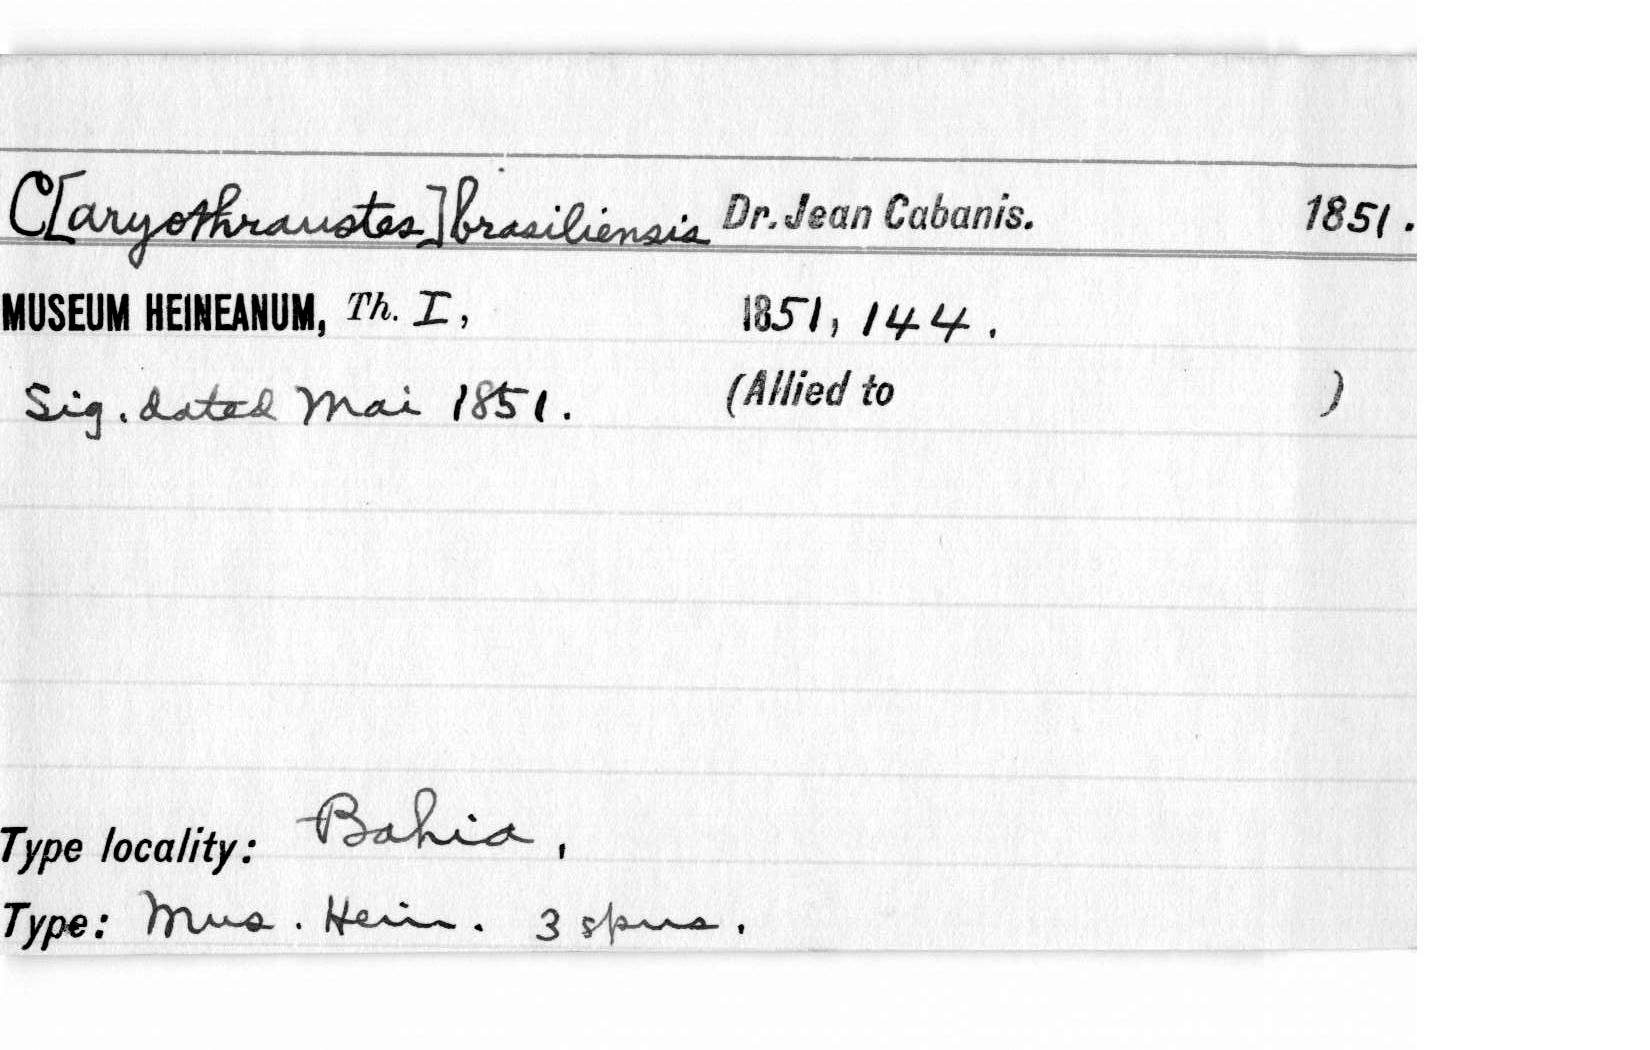 C[aryothraustes] brasiliensis Dr. Jean Cabanis. 1851.
MUSEUM HEINEANUM, Th. I, 1851, 144.
Sig. dated Mai 1851. (Allied to )
Type locality: Bahia,
Type: Mus. Hein. 3 spns.